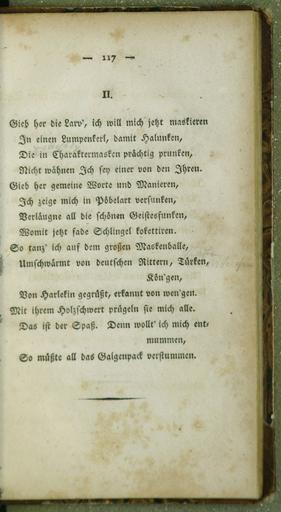 — 117 —
II.
Gieb her die Larv', ich will mich jetzt maskieren
In einen Lumpenkerl, damit Halunken,
Die in Charaktermasken prächtig prunken,
Nicht wähnen Ich sey einer von den Ihren.
Gieb her gemeine Worte und Manieren,
Ich zeige mich in Pöbelart versunken,
Verläugne all die schönen Geistesfunken,
Womit jetzt fade Schlingel kokettiren.
So tanz' ich auf dem großen Maskenballe,
Umschwärmt von deutschen Rittern, Türken,
Kön'gen,
Von Harlekin gegrüßt, erkannt von wen'gen.
Mit ihrem Holzschwert prügeln sie mich alle.
Das ist der Spaß. Denn wollt' ich mich ent-
mummen,
So müßte all das Galgenpack verstummen.